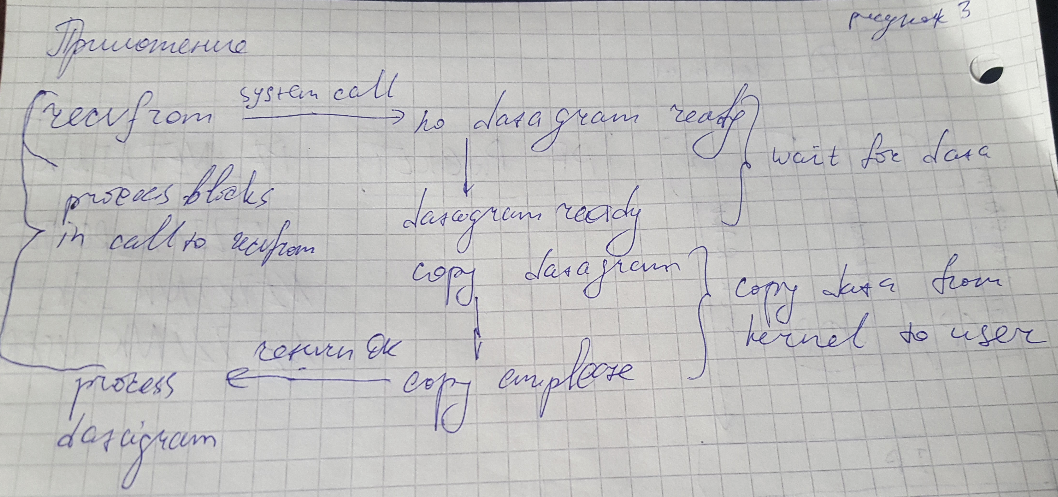 рисунок 3
Приложение
recvfrom system call no datagram ready
wait for data
process blocks
in call to recvfrom
datagram ready
copy datagram
copy data from
kernel to user
return OK
process copy complete
datagram